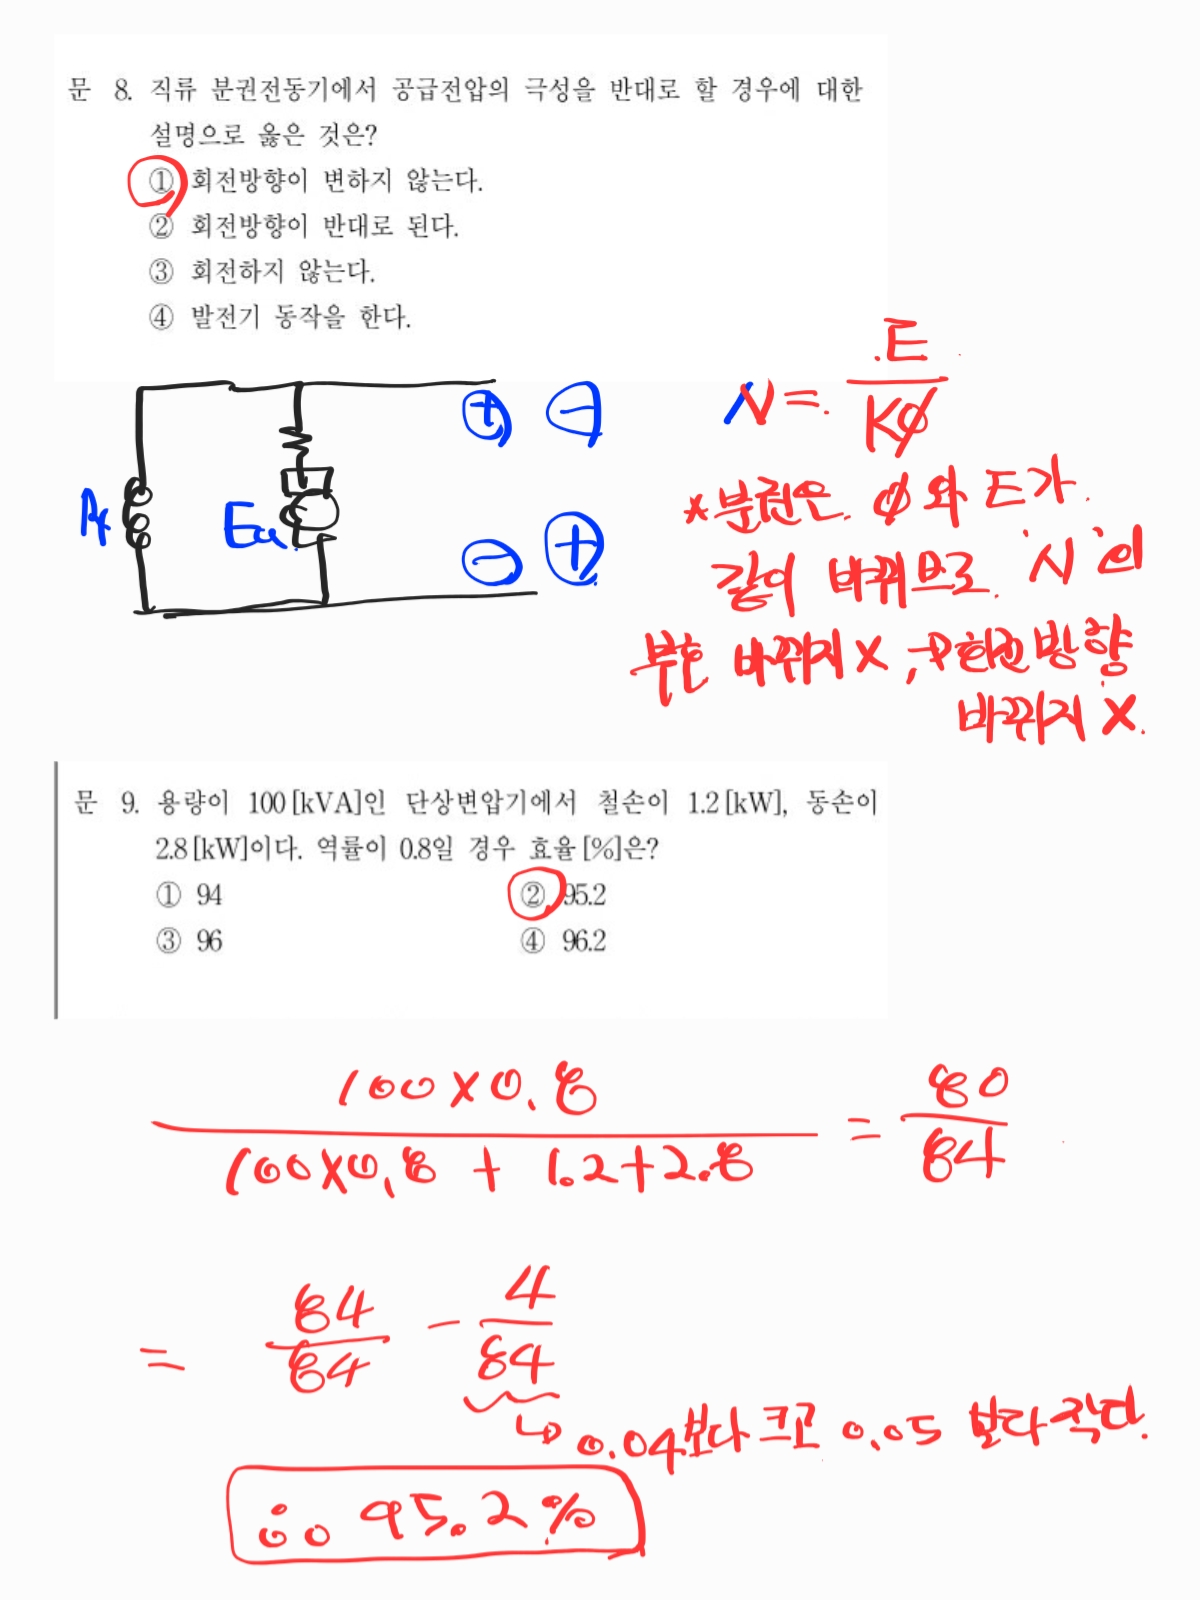 문 8. 직류 분권전동기에서 공급전압의 극성을 반대로 할 경우에 대한
설명으로 옳은 것은?
① 회전방향이 변하지 않는다.
② 회전방향이 반대로 된다.
③ 회전하지 않는다.
④ 발전기 동작을 한다.
+ −
Ea
− +
N = E / Kφ
*분권은 φ와 E가
같이 바뀌므로 'N'의
부호 바뀌지 X, → 회전방향
바뀌지 X.
문 9. 용량이 100[kVA]인 단상변압기에서 철손이 1.2[kW], 동손이
2.8[kW]이다. 역률이 0.8일 경우 효율[%]은?
① 94 ② 95.2
③ 96 ④ 96.2
100×0.8 / 100×0.8 + 1.2+2.8 = 80/84
= 84/84 − 4/84
↳ 0.04보다 크고 0.05 보다 작다.
∴ 95.2%